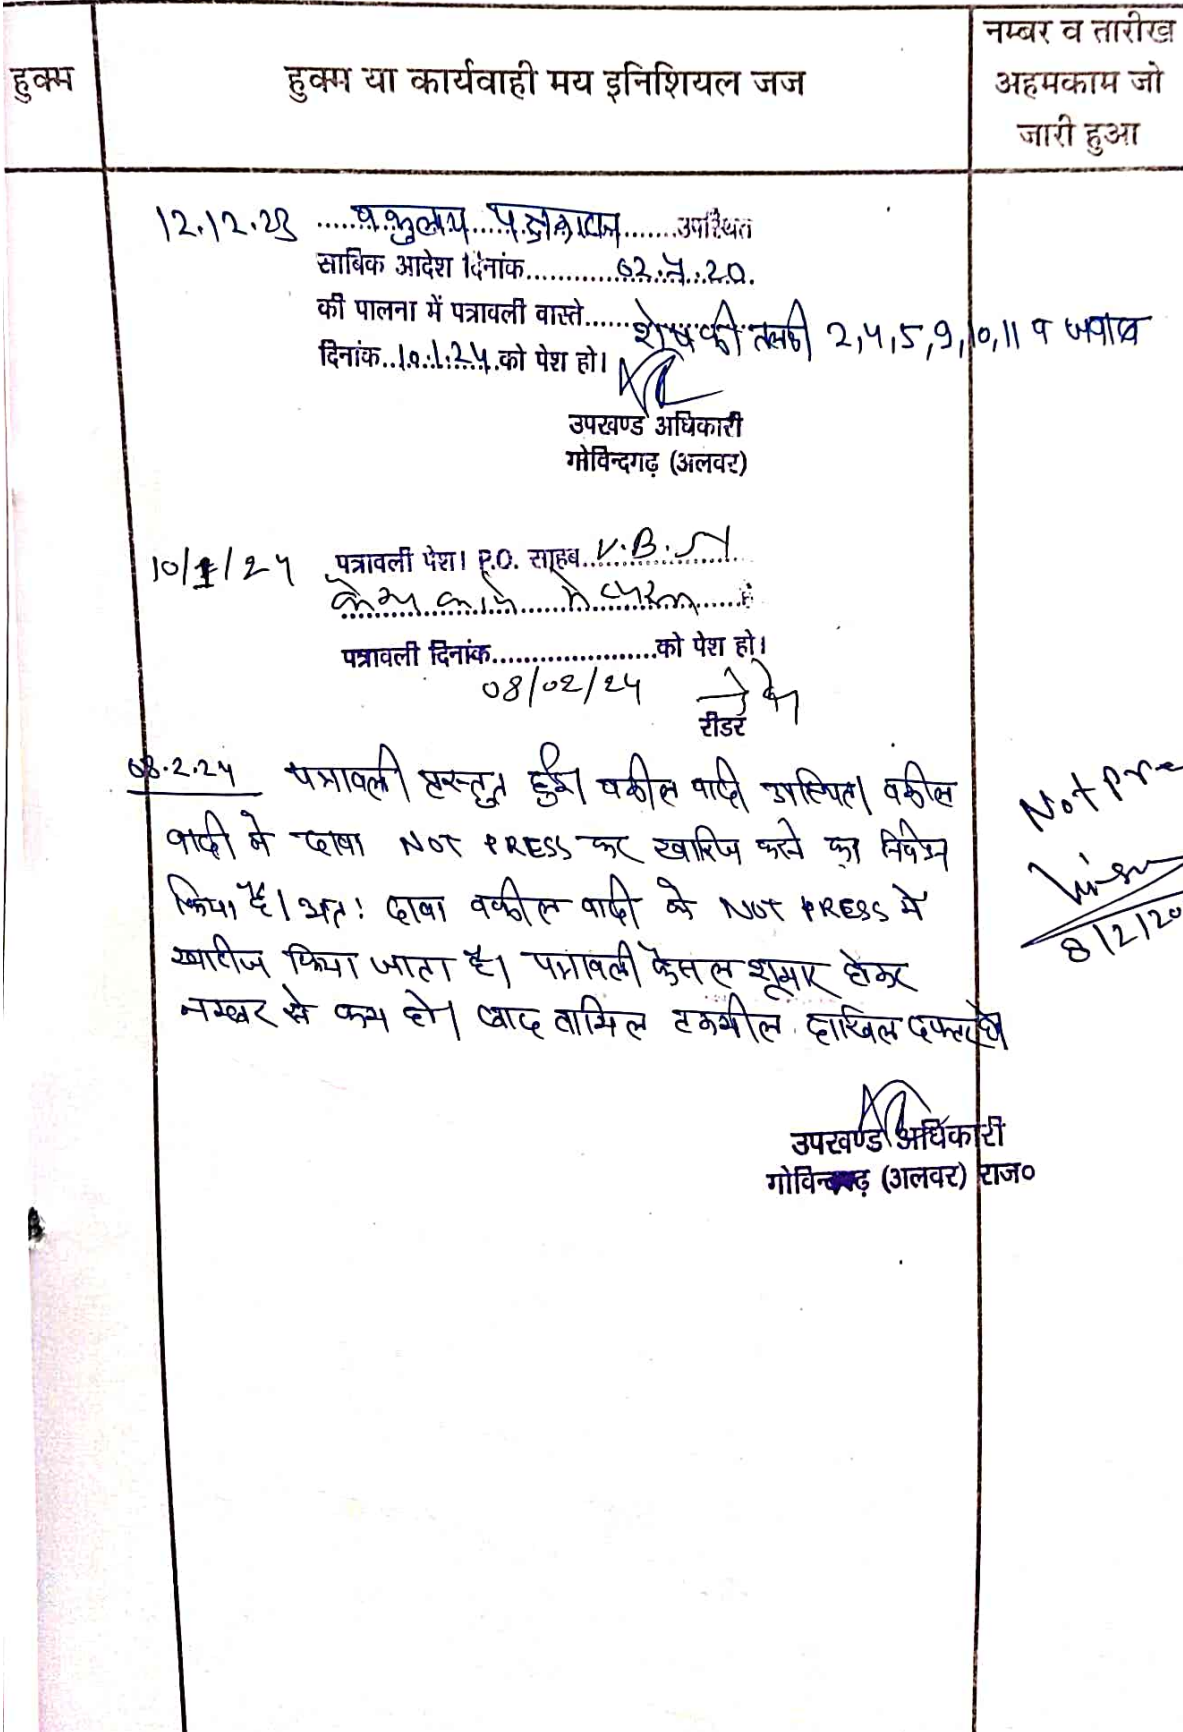 हुक्म
हुक्म या कार्यवाही मय इनिशियल जज
नम्बर व तारीख
अहमकाम जो
जारी हुआ
12.12.23 ................ उपस्थित
साबिक आदेश दिनांक............02.7.20.
की पालना में पत्रावली वास्ते...... शेष की तलबी 2,4,5,9,10,11 व जवाब
दिनांक..10.1.24.को पेश हो।
उपखण्ड अधिकारी
गोविन्दगढ़ (अलवर)
10/1/24 पत्रावली पेश। P.O. साहब
पत्रावली दिनांक.....................को पेश हो।
08/02/24
रीडर
08.2.24 पत्रावली प्रस्तुत हुई। वकील वादी उपस्थित। वकील
वादी ने दावा NOT PRESS कर खारिज करने का निवेदन
किया है। अतः दावा वकील वादी के NOT PRESS में
खारीज किया जाता है। पत्रावली फैसल शूमार होकर
नम्बर से कम हो। बाद तामिल तकमील दाखिल दफ्तर हो
Not Pre
8/2/20
उपखण्ड अधिकारी
गोविन्दगढ़ (अलवर) राज०